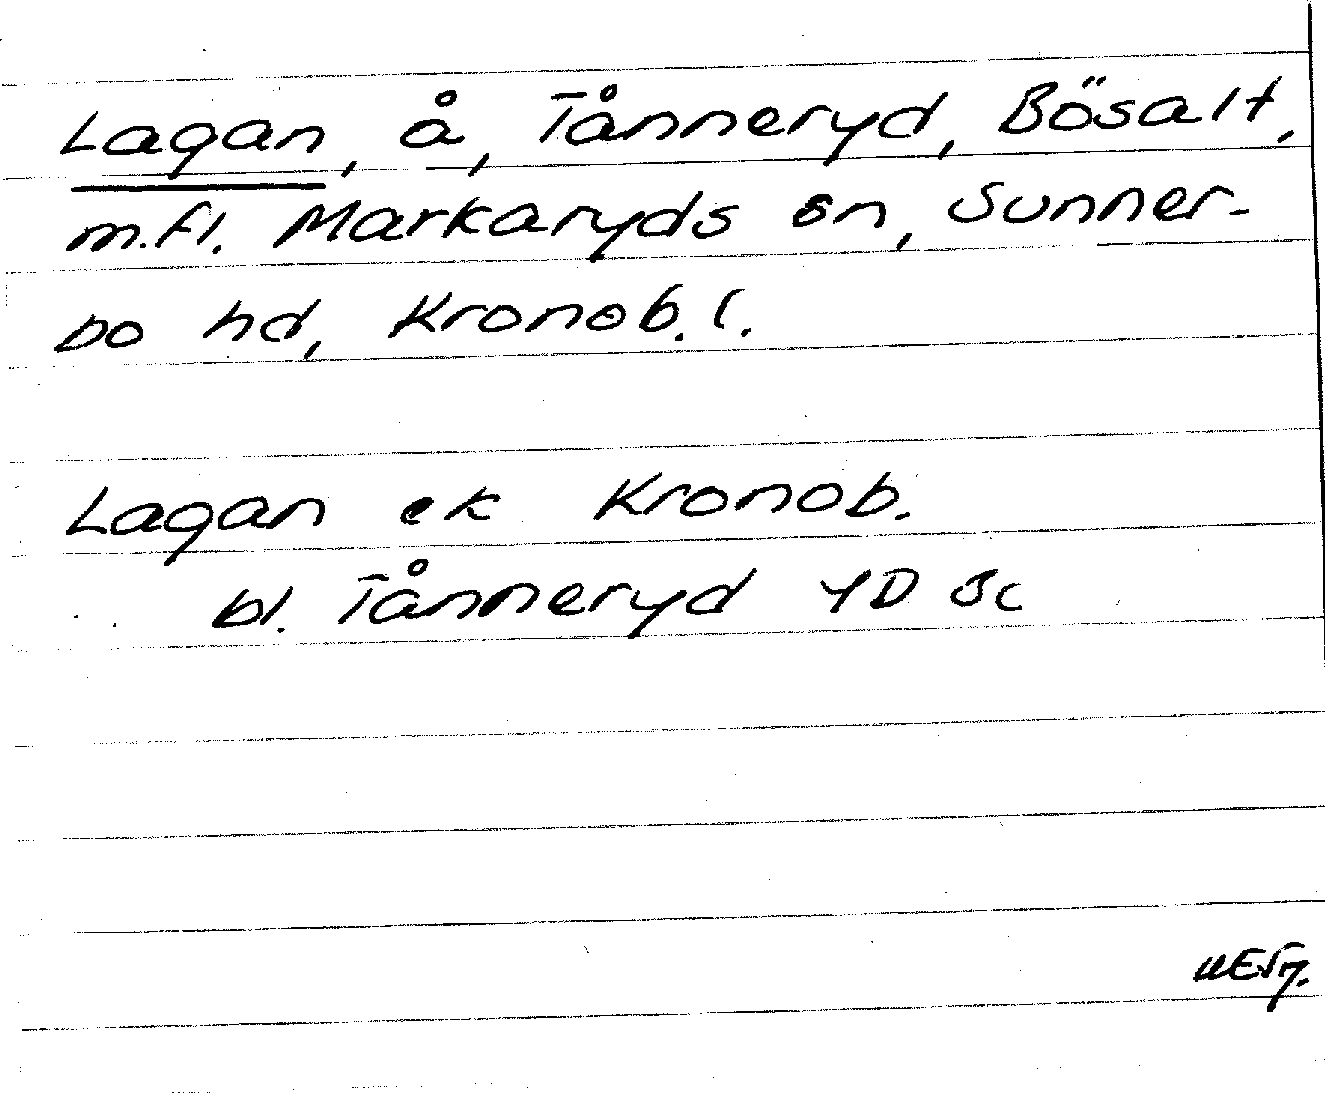 Lagan, å, Tånneryd, Bösalt,
m.fl. Markaryds sn, Sunner-
bo hd, Kronob. l.
Lagan ek Kronob.
bl. Tånneryd 4D 8c